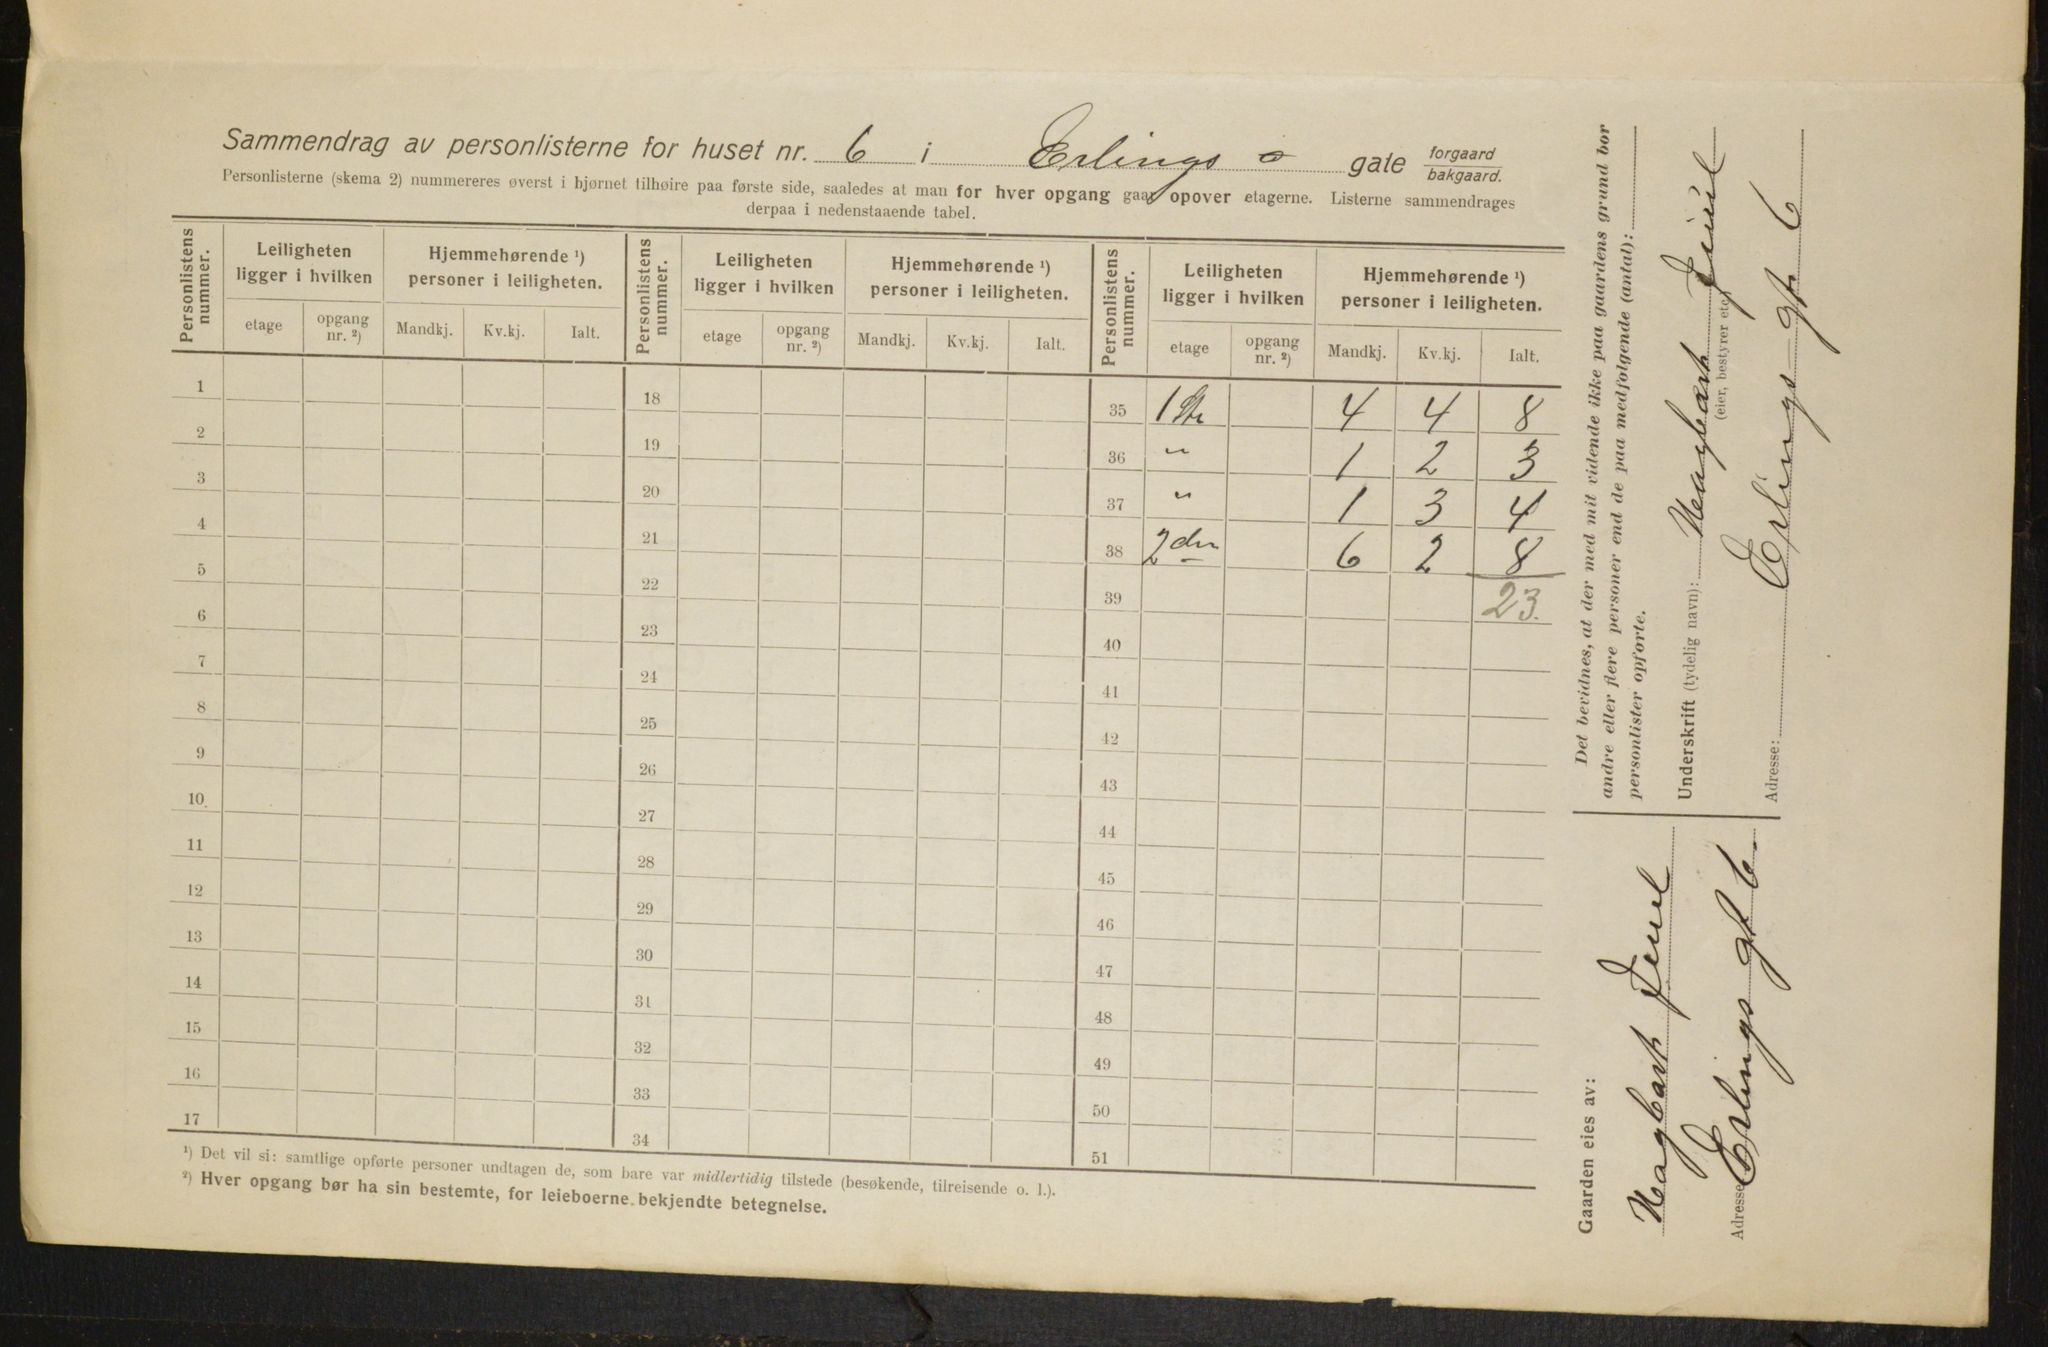 Sammendrag av personlisterne for huset nr. 6 i Erlings gate forgaard bakgaard.
Personlisterne (skema 2) nummereres øverst i hjørnet tilhøire paa første side, saaledes at man for hver opgang gaar opover etagerne. Listerne sammendrages
derpaa i nedenstaaende tabel.
Personlistens nummer. Leiligheten ligger i hvilken Hjemmehørende ¹) personer i leiligheten. Personlistens nummer. Leiligheten ligger i hvilken Hjemmehørende ¹) personer i leiligheten. Personlistens nummer. Leiligheten ligger i hvilken Hjemmehørende ¹) personer i leiligheten.
etage opgang nr. ²) Mandkj. Kv.kj. Ialt. etage opgang nr. ²) Mandkj. Kv.kj. Ialt. etage opgang nr. ²) Mandkj. Kv.kj. Ialt.
1 18 35 1ste 4 4 8
2 19 36 " 1 2 3
3 20 37 " 1 3 4
4 21 38 2den 6 2 8
5 22 39 23.
6 23 40
7 24 41
8 25 42
9 26 43
10 27 44
11 28 45
12 29 46
13 30 47
14 31 48
15 32 49
16 33 50
17 34 51
¹) Det vil si: samtlige opførte personer undtagen de, som bare var midlertidig tilstede (besøkende, tilreisende o. l.).
²) Hver opgang bør ha sin bestemte, for leieboerne bekjendte betegnelse.
Det bevidnes, at der med mit vidende ikke paa gaardens grund bor
andre eller flere personer end de paa medfølgende (antal):
personlister opførte.
Underskrift (tydelig navn): Hagbart Juul
(eier, bestyrer etc.)
Adresse: Erlings gt 6
Gaarden eies av:
Hagbart Juul
Adresse Erlings gt 6